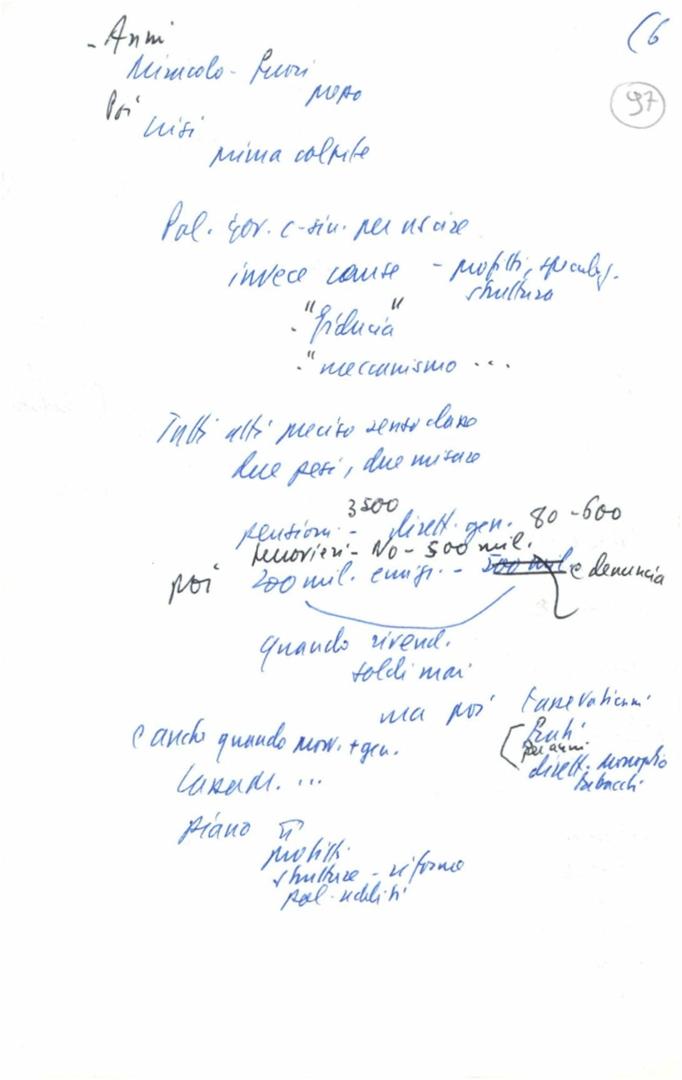 (6
97
- Anni
Miracolo - Fuori
Poi
crisi
prima colpite
Pal. gov. c-sin. per uscire
invece cause - profitti, speculaz.
struttura
- "fiducia"
- "meccanismo ...
Tutti atti preciso senso classe
due pesi, due misure
3500
pensioni - dirett. gen. 80 - 600
ferrovieri - No - 500 mil.
poi 200 mil. emigr. - 500 mil. e denuncia
quando rivend.
soldi mai
ma poi tasse vaticani
per anni
dirett. monopolio
tabacchi
E anche quando provv. + gen.
piano
profitti
strutture - riforme
pol. redditi